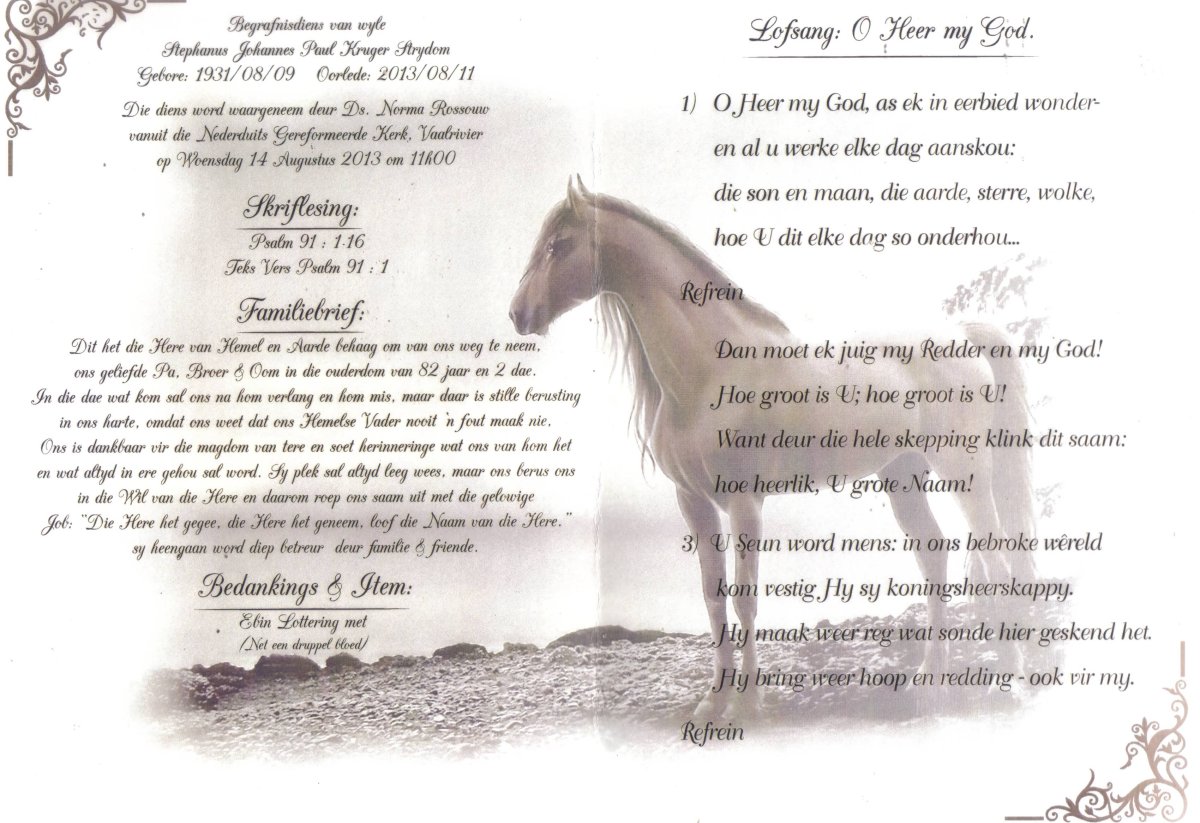 Begrafnisdiens van wyle
Stephanus Johannes Paul Kruger Strydom
Gebore: 1931/08/09 Oorlede: 2013/08/11
Die diens word waargeneem deur Ds. Norma Rossouw
vanuit die Nederduits Gereformeerde Kerk, Vaalrivier
op Woensdag 14 Augustus 2013 om 11h00
Skriflesing:
Psalm 91 : 1-16
Teks Vers Psalm 91 : 1
Familiebrief:
Dit het die Here van Hemel en Aarde behaag om van ons weg te neem,
ons geliefde Pa, Broer & Oom in die ouderdom van 82 jaar en 2 dae.
In die dae wat kom sal ons na hom verlang en hom mis, maar daar is stille berusting
in ons harte, omdat ons weet dat ons Hemelse Vader nooit 'n fout maak nie,
Ons is dankbaar vir die magdom van tere en soet herinneringe wat ons van hom het
en wat altyd in ere gehou sal word. Sy plek sal altyd leeg wees, maar ons berus ons
in die Wil van die Here en daarom roep ons saam uit met die gelowige
Job: "Die Here het gegee, die Here het geneem, loof die Naam van die Here."
sy heengaan word diep betreur deur familie & friende.
Bedankings & Item:
Ebin Lottering met
(Net een druppel bloed)
Lofsang: O Heer my God.
1) O Heer my God, as ek in eerbied wonder-
en al u werke elke dag aanskou:
die son en maan, die aarde, sterre, wolke,
hoe U dit elke dag so onderhou...
Refrein
Dan moet ek juig my Redder en my God!
Hoe groot is U; hoe groot is U!
Want deur die hele skepping klink dit saam:
hoe heerlik, U grote Naam!
3) U Seun word mens: in ons bebroke wêreld
kom vestig Hy sy koningsheerskappy.
Hy maak weer reg wat sonde hier geskend het.
Hy bring weer hoop en redding - ook vir my.
Refrein